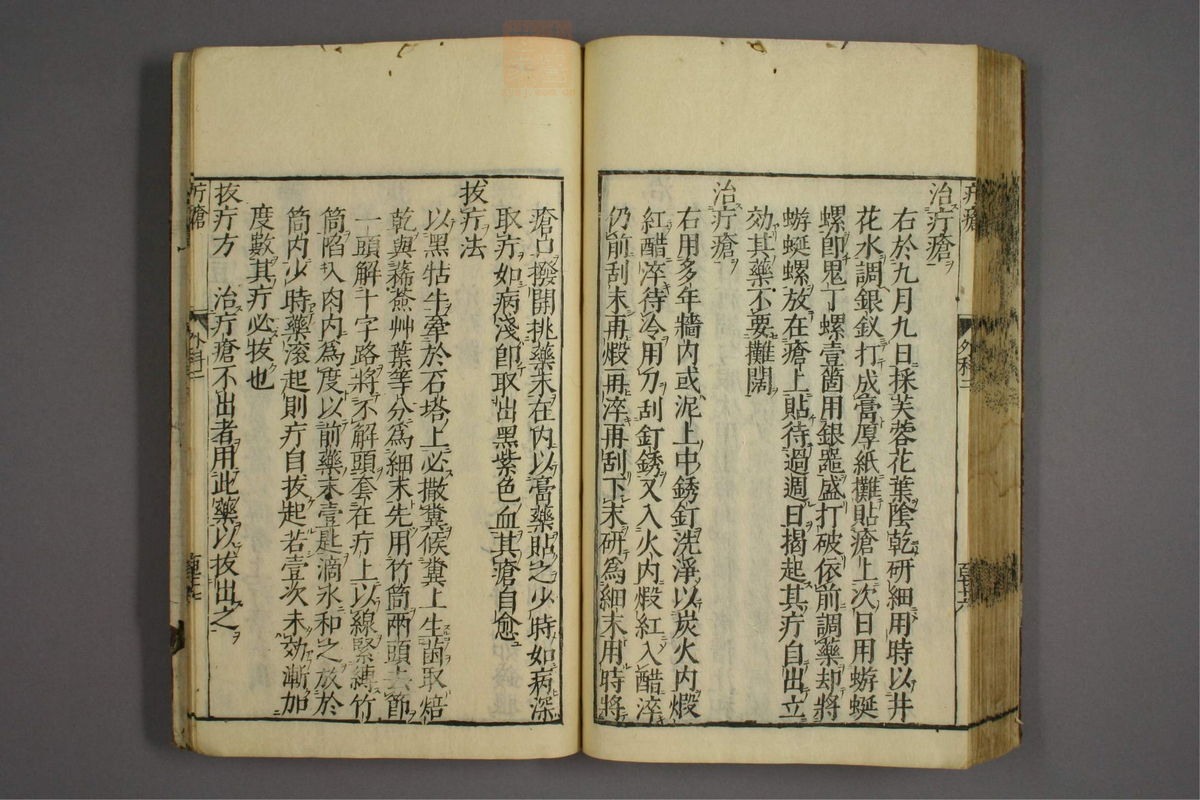 疔瘡
外科二
治疔瘡
右於九月九日採芙蓉花葉陰乾研細用時以井
花水調銀釵打成膏厚紙攤貼瘡上次日用蝣蜒
螺卽鬼丁螺壹箇用銀器盛打破依前調藥却將
蝣蜒螺放在瘡上貼待過週日揭起其疔自出立
効其藥不要攤闊
治疔瘡
右用多年牆內或泥上中銹釘洗淨以炭火內煅
紅醋淬待冷用刀刮釘銹又入火內煅紅入醋淬
仍前刮末再煅再淬再刮下末研爲細末用時將
瘡口撥開挑藥末在內以膏藥貼之少時如病深
取疔如病淺卽取出黑紫色血其瘡自愈
拔疔法
以黑牯牛牽於石塔上必撒糞候糞上生菌取焙
乾與豨薟艸葉等分爲細末先用竹筒兩頭去節
一頭解十字路將不解頭套在疔上以線緊縛竹
筒陷入肉內爲度以前藥末壹匙滴水和之放於
筒內少時藥滾起則疔自拔起若壹次未効漸加
度數其疔必拔也
拔疔方 治疔瘡不出者用此藥以拔出之
疔瘡
外科二